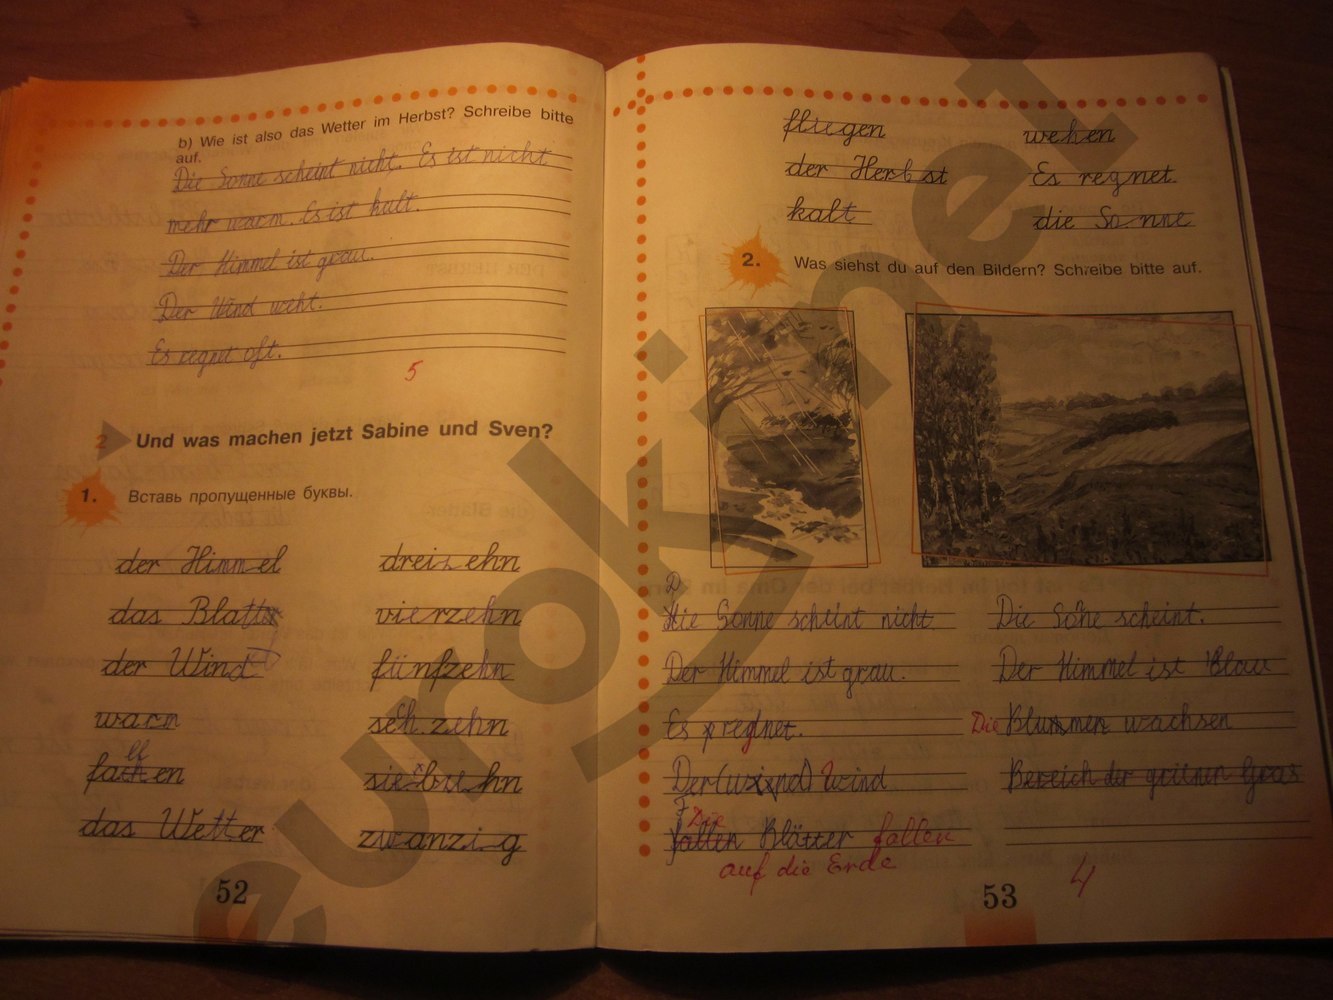 b) Wie ist also das Wetter im Herbst? Schreibe bitte
auf.
Die Sonne scheint nicht. Es ist nicht
mehr warm. Es ist kalt.
Der Himmel ist grau.
Der Wind weht.
Es regnet oft.
5
2 Und was machen jetzt Sabine und Sven?
1. Вставь пропущенные буквы.
der Himmel dreizehn
das Blatt vierzehn
der Wind fünfzehn
warm sechzehn
fallen siebzehn
das Wetter zwanzig
52
fliegen wehen
der Herbst Es regnet.
kalt die Sonne
2. Was siehst du auf den Bildern? Schreibe bitte auf.
Die Sonne scheint nicht Die Sonne scheint.
Der Himmel ist grau. Der Himmel ist Blau
Es regnet. Die Blummen wachsen
Der Wind der grünen Gras
Die
fallen Blätter fallen
auf die Erde
4
53
eurokinet